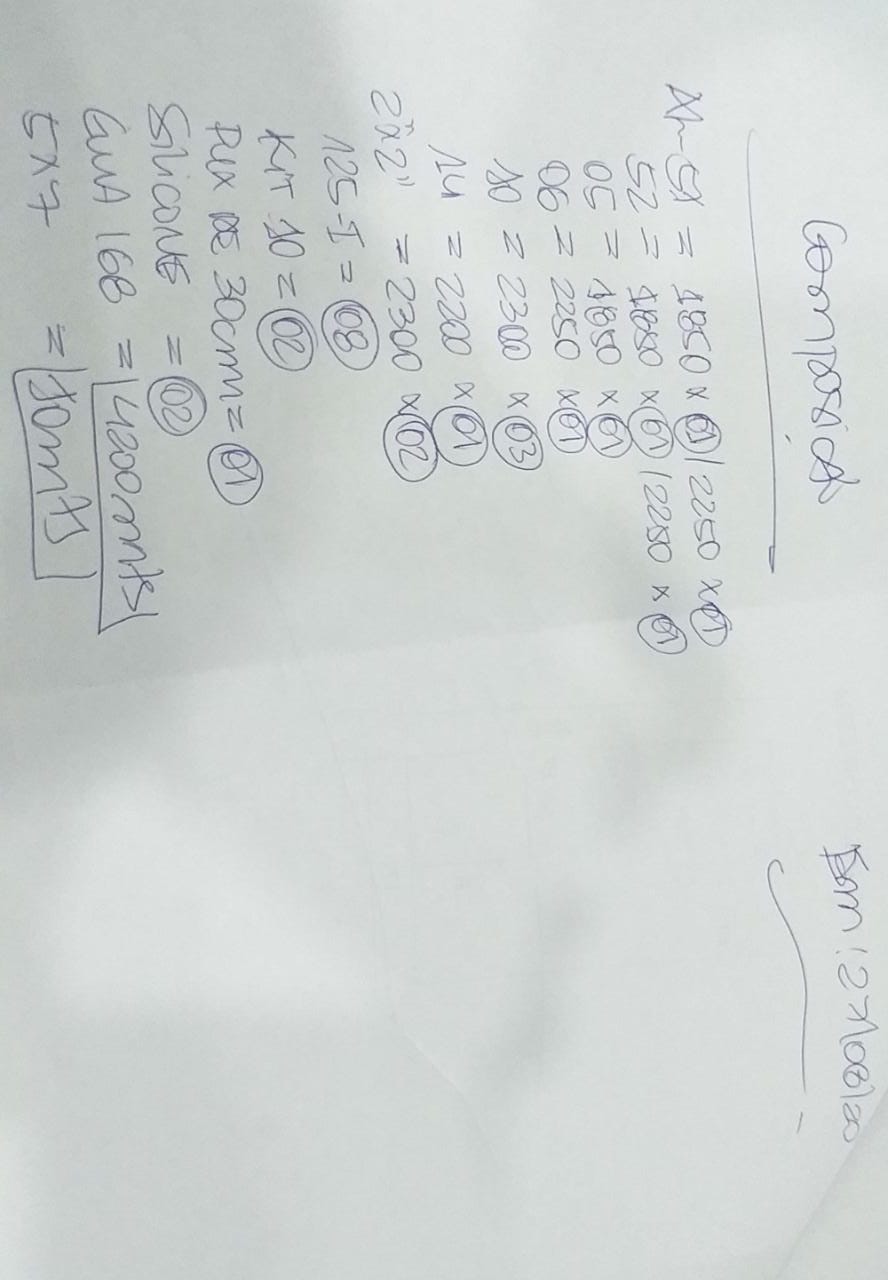 Em: 27/08/20
XV-51 = 1850 x 01 / 2250 x 01
52 = 1850 x 01 / 2250 x 01
05 = 1850 x 01
06 = 2250 x 01
10 = 2300 x 03
14 = 2200 x 01
2"x2" = 2300 x 02
125-I = 08
KIT 10 = 02
PUX DE 30cm = 01
SILICONE = 02
168 = 4200mts
5x7 = 10mts